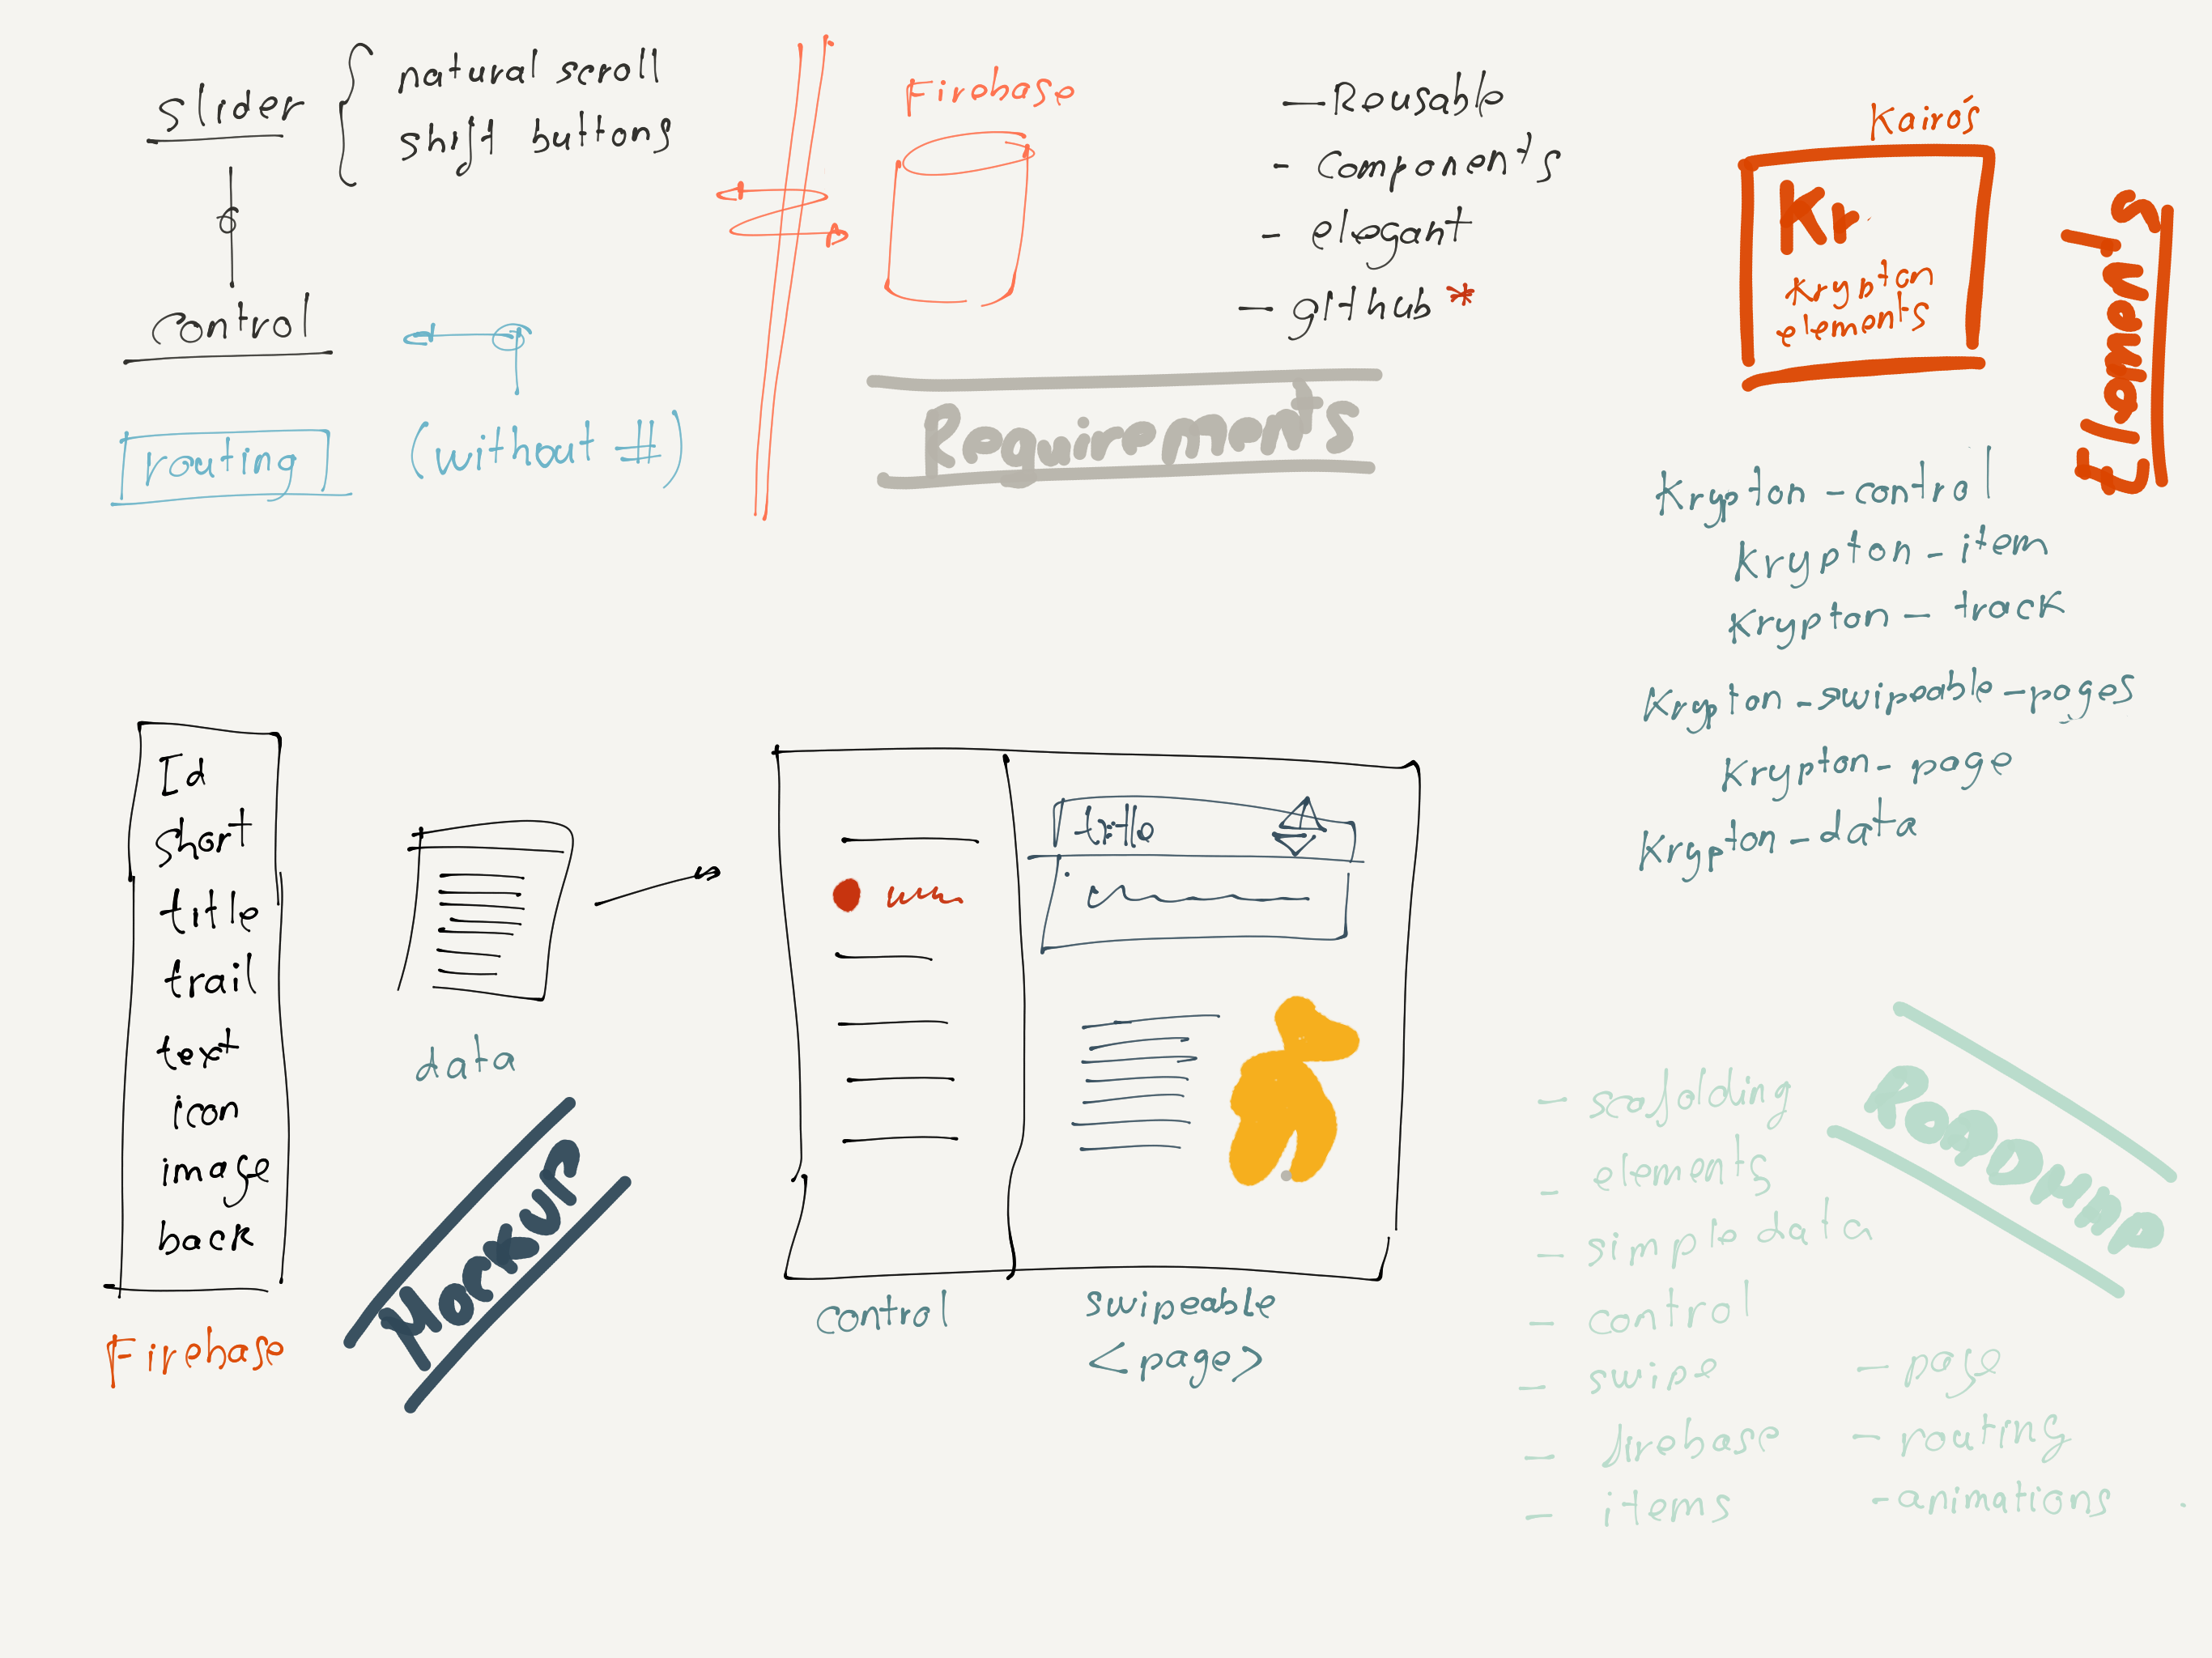 slider
natural scroll
shift buttons
control
routing
(without #)
Firebase
- Reusable
- components
- elegant
- github *
Requirements
Kairós
Kr
Krypton
elements
Krypton-control
Krypton-item
Krypton-track
Krypton-swipeable-pages
Krypton-page
Krypton-data
Id
short
title
trail
text
icon
image
back
Firebase
data
Mockup
title
control
swipeable
<page>
RoaDMAP
- scafolding
- elements
- simple data
- control
- swipe
- firebase
- items
- page
- routing
- animations